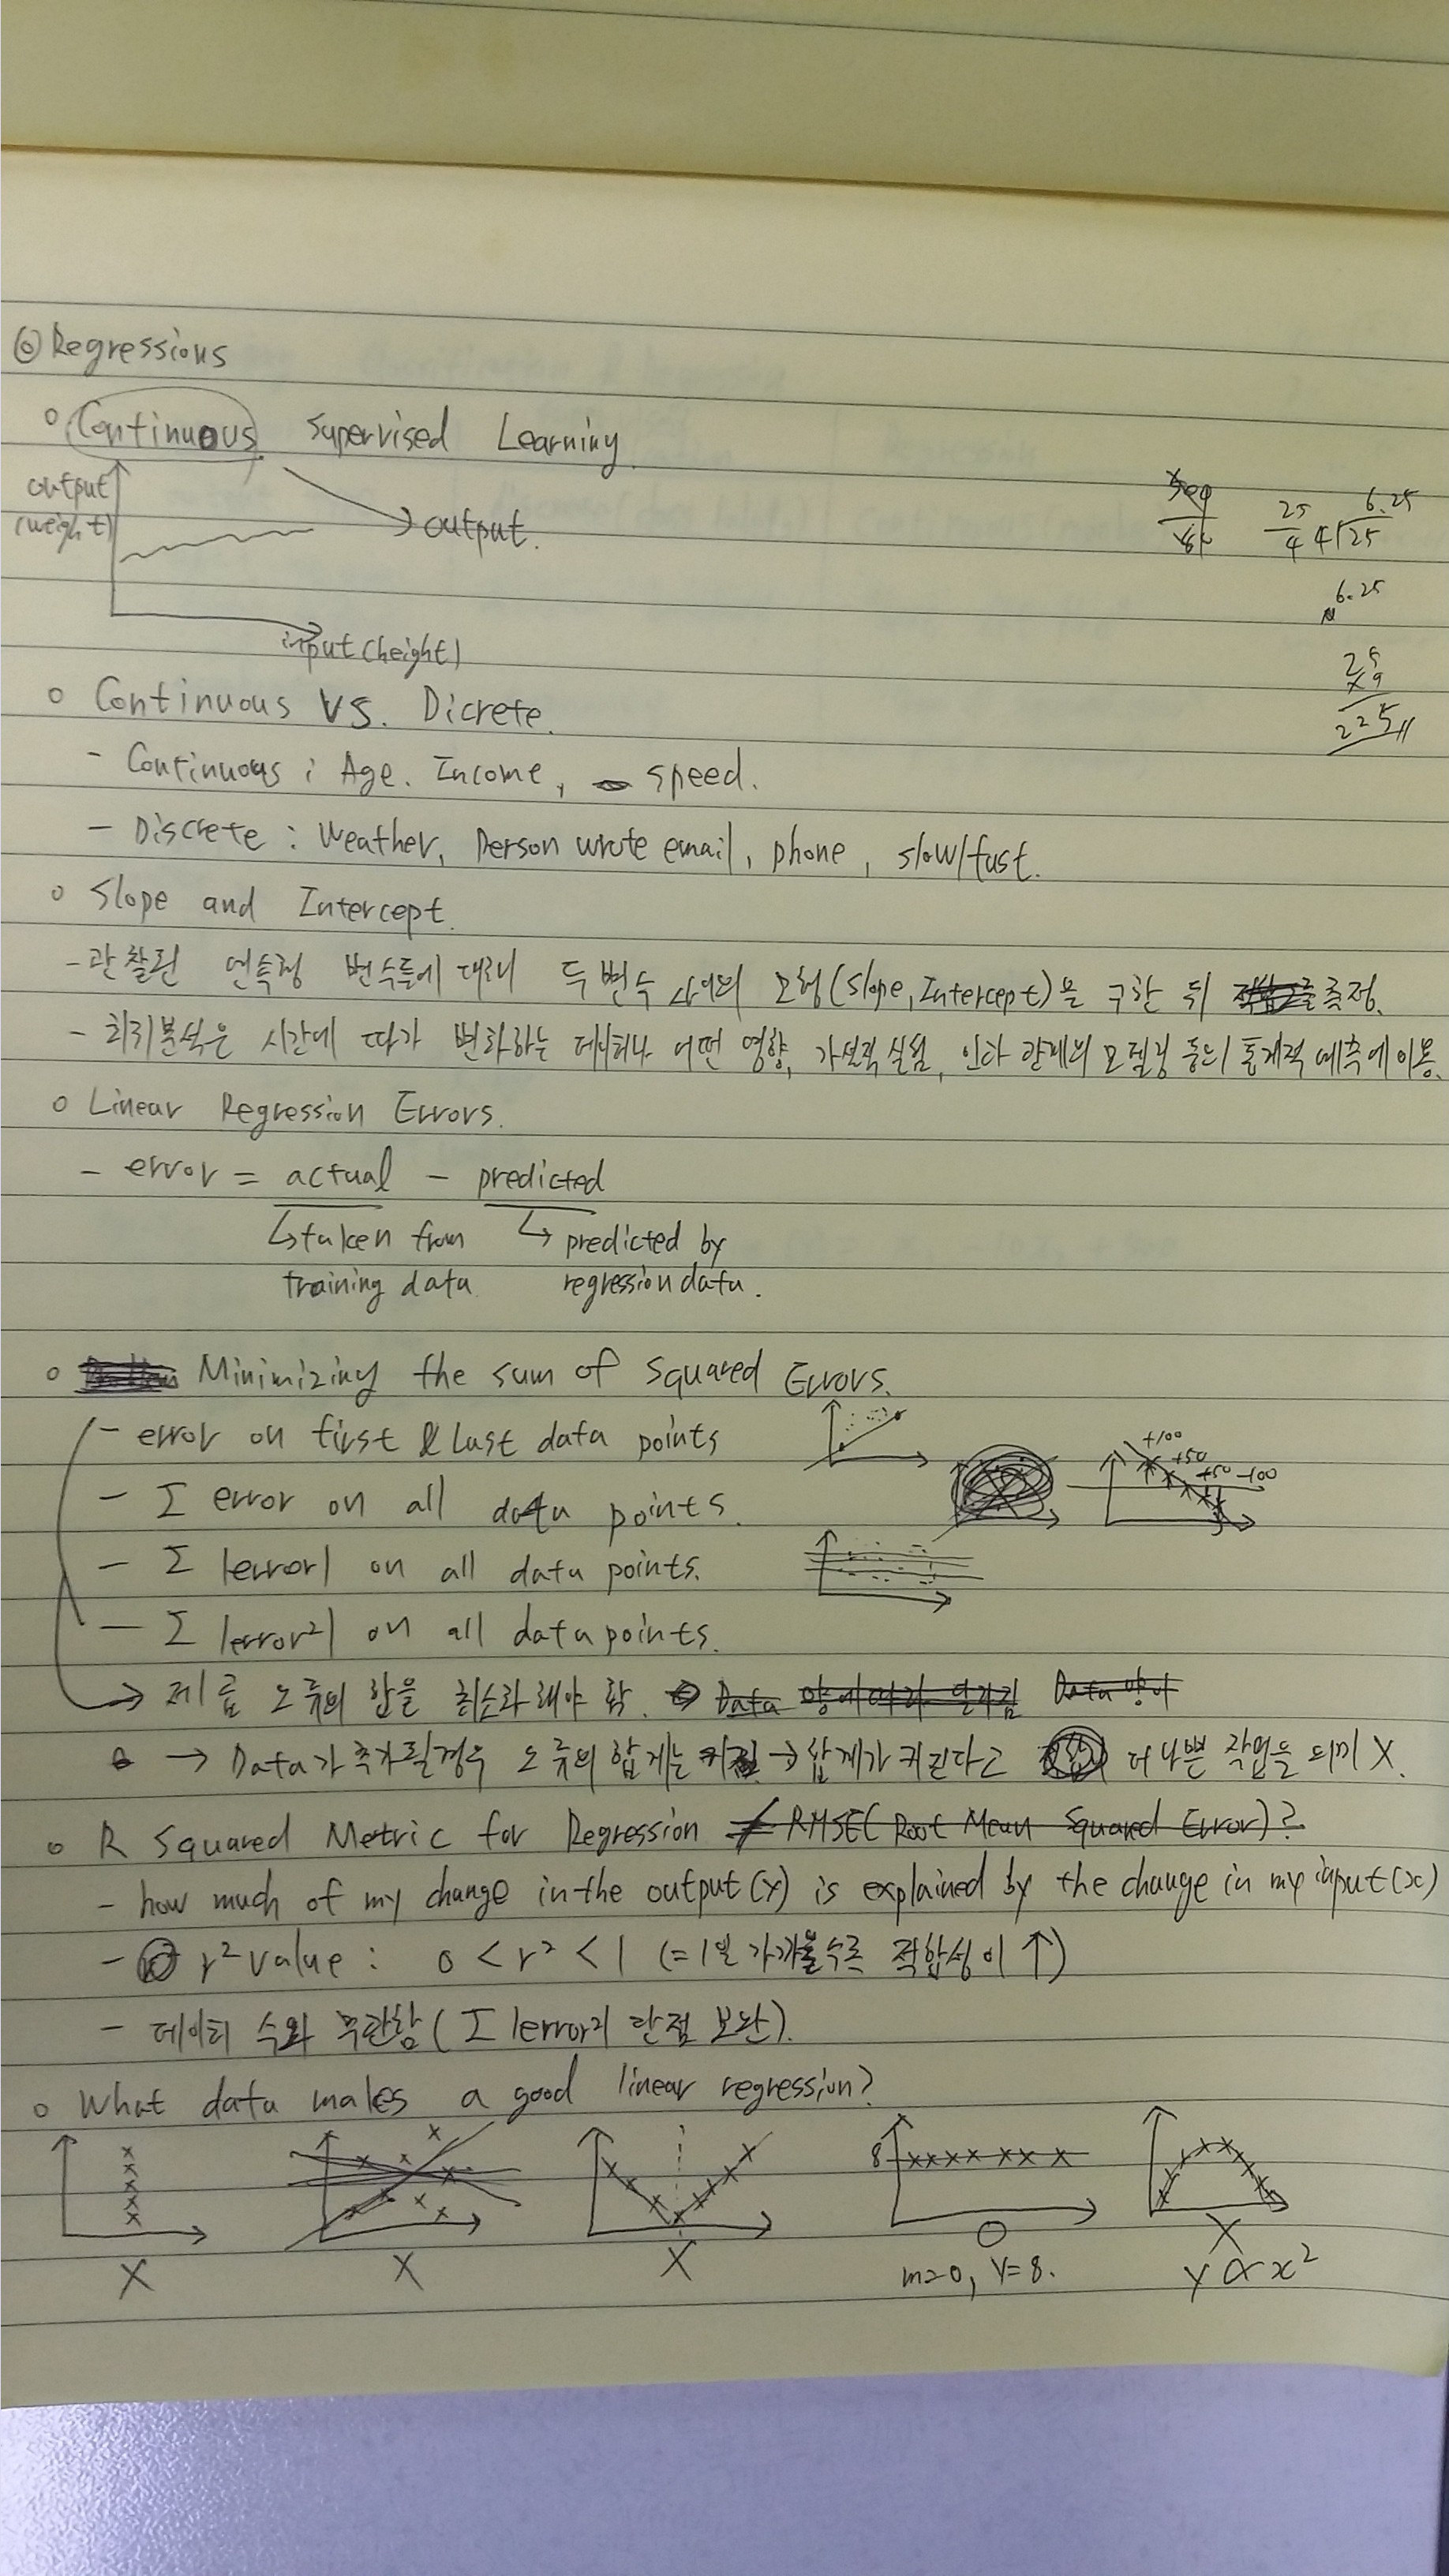 ◎ Regressions
○ Continuous Supervised Learning
output
(weight)
→ output.
input (height)
25/4 4√25 6.25
6.25
25
x 9
225
○ Continuous VS. Dicrete.
- Continuous : Age. Income, speed.
- Discrete : Weather, Person wrote email, phone, slow/fast.
○ Slope and Intercept.
- 관찰된 연속형 변수들에 대해 두 변수 사이의 모형(Slope, Intercept)을 구한 뒤 측정.
- 회귀분석은 시간에 따라 변화하는 데이터나 어떤 영향, 가설적 실험, 인과 관계의 모델링 등의 통계적 예측에 이용.
○ Linear Regression Errors.
- error = actual - predicted
↳ taken from ↳ predicted by
training data regression data.
○ Minimizing the sum of Squared Errors.
- error on first & last data points
+100 +50 +50 -100
- Σ error on all data points.
- Σ |error| on all data points.
- Σ |error²| on all data points.
→ 제곱 오류의 합을 최소화 해야 함. Data 양에 따라 달라짐 Data 양이
→ Data가 추가될 경우 오류의 합계는 커짐 → 합계가 커진다고 더 나쁜 작업을 의미 X.
○ R Squared Metric for Regression ≠ RMSE( Root Mean Squared Error)?
- how much of my change in the output (y) is explained by the change in my input (x)
- r² value : 0 < r² < 1 (= 1에 가까울수록 적합성이 ↑)
- 데이터 수와 무관함 ( Σ |error²| 단점 보완).
○ What data makes a good linear regression?
8
X X X O X
m=0, y=8. y ∝ x²